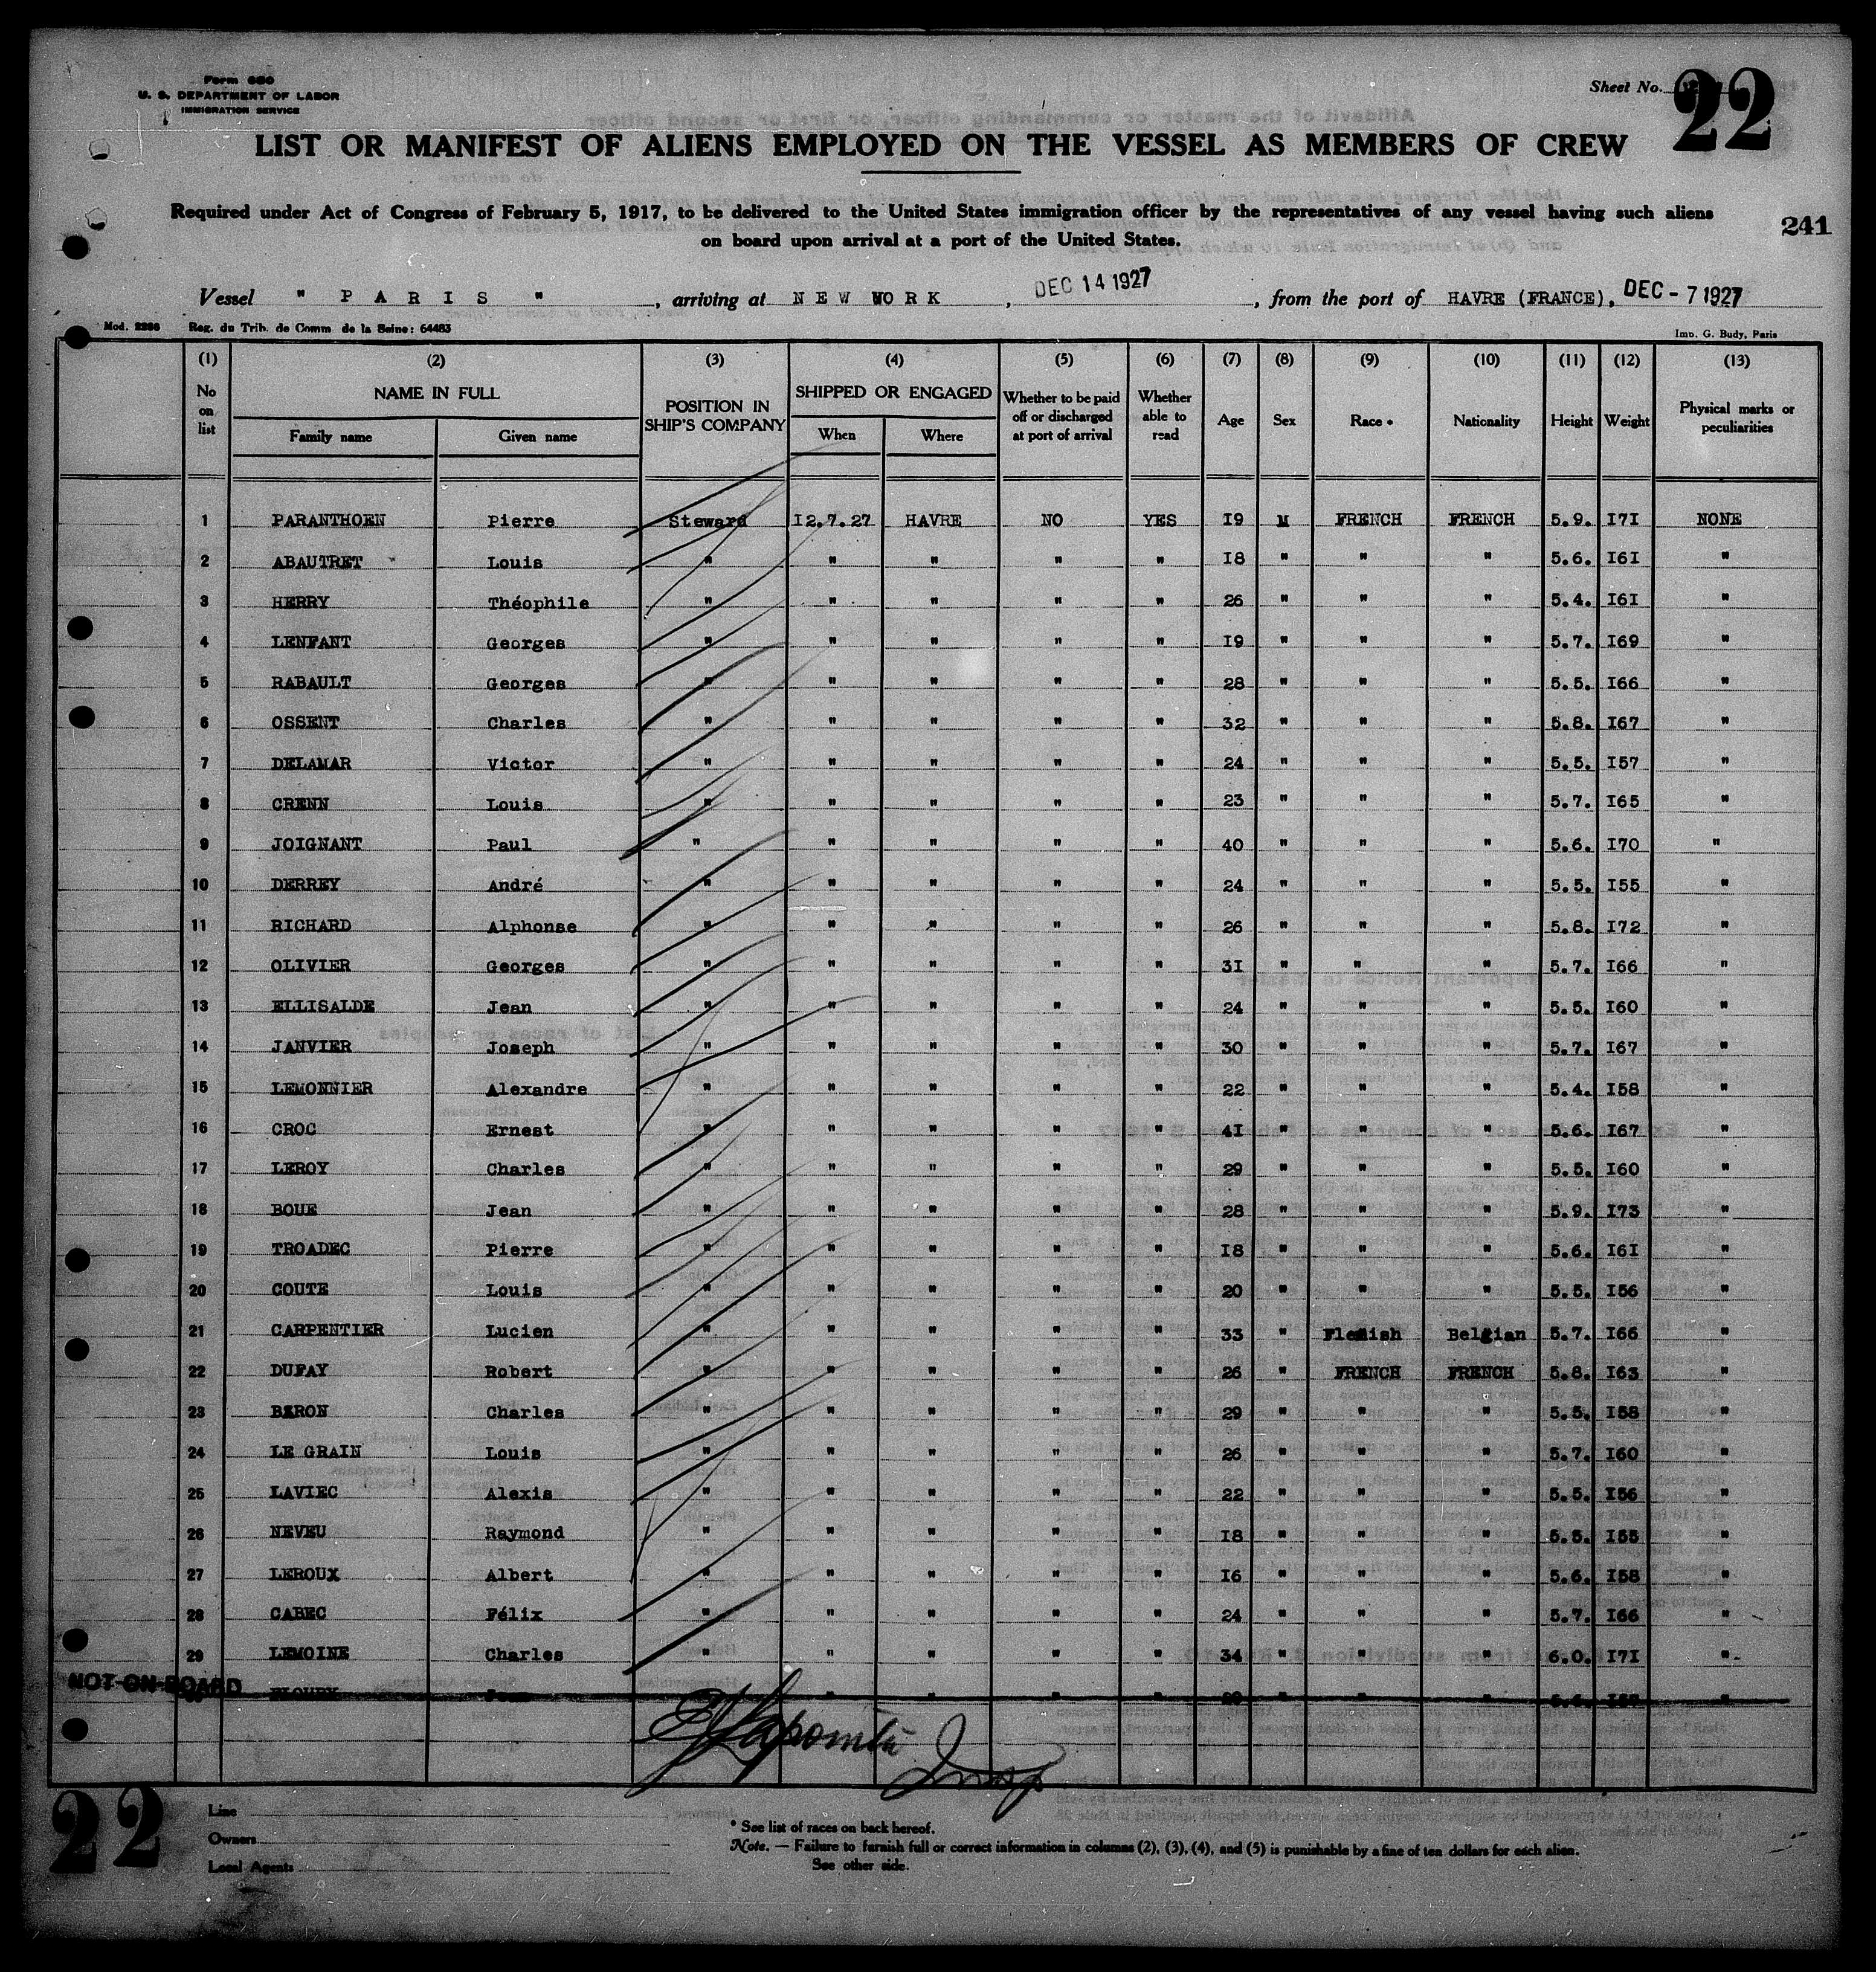 Form 680
U. S. DEPARTMENT OF LABOR
IMMIGRATION SERVICE
Sheet No. 22
LIST OR MANIFEST OF ALIENS EMPLOYED ON THE VESSEL AS MEMBERS OF CREW
Required under Act of Congress of February 5, 1917, to be delivered to the United States immigration officer by the representatives of any vessel having such aliens
on board upon arrival at a port of the United States.
241
Vessel " P A R I S " , arriving at N E W W O R K , DEC 14 1927 , from the port of HAVRE (FRANCE), DEC - 7 1927
Mod. 2286 Reg. du Trib. de Comm. de la Seine: 64483 Imp. G. Budy, Paris
(1) (2) (3) (4) (5) (6) (7) (8) (9) (10) (11) (12) (13)
No on list NAME IN FULL Family name Given name POSITION IN SHIP'S COMPANY SHIPPED OR ENGAGED When Where Whether to be paid off or discharged at port of arrival Whether able to read Age Sex Race * Nationality Height Weight Physical marks or peculiarities
1 PARANTHOEN Pierre Steward I2.7.27 HAVRE NO YES I9 M FRENCH FRENCH 5.9. I7I NONE
2 ABAUTRET Louis " " " " " I8 " " " 5.6. I6I "
3 HERRY Théophile " " " " " 26 " " " 5.4. I6I "
4 LENFANT Georges " " " " " I9 " " " 5.7. I69 "
5 RABAULT Georges " " " " " 28 " " " 5.5. I66 "
6 OSSENT Charles " " " " " 32 " " " 5.8. I67 "
7 DELAMAR Victor " " " " " 24 " " " 5.5. I57 "
8 CRENN Louis " " " " " 23 " " " 5.7. I65 "
9 JOIGNANT Paul " " " " " 40 " " " 5.6. I70 "
10 DERREY André " " " " " 24 " " " 5.5. I55 "
11 RICHARD Alphonse " " " " " 26 " " " 5.8. I72 "
12 OLIVIER Georges " " " " " 3I " " " 5.7. I66 "
13 ELLISALDE Jean " " " " " 24 " " " 5.5. I60 "
14 JANVIER Joseph " " " " " 30 " " " 5.7. I67 "
15 LEMONNIER Alexandre " " " " " 22 " " " 5.4. I58 "
16 CROC Ernest " " " " " 4I " " " 5.6. I67 "
17 LEROY Charles " " " " " 29 " " " 5.5. I60 "
18 BOUE Jean " " " " " 28 " " " 5.9. I73 "
19 TROADEC Pierre " " " " " I8 " " " 5.6. I6I "
20 COUTE Louis " " " " " 20 " " " 5.5. I56 "
21 CARPENTIER Lucien " " " " " 33 " Flemish Belgian 5.7. I66 "
22 DUFAY Robert " " " " " 26 " FRENCH FRENCH 5.8. I63 "
23 BARON Charles " " " " " 29 " " " 5.5. I58 "
24 LE GRAIN Louis " " " " " 26 " " " 5.7. I60 "
25 LAVIEC Alexis " " " " " 22 " " " 5.5. I56 "
26 NEVEU Raymond " " " " " I8 " " " 5.5. I55 "
27 LEROUX Albert " " " " " I6 " " " 5.6. I58 "
28 CABEC Félix " " " " " 24 " " " 5.7. I66 "
29 LEMOINE Charles " " " " " 34 " " " 6.0. I7I "
NOT ON BOARD " " " " " " " "
Insp
22
Line
Owners
Local Agents
* See list of races on back hereof.
Note. — Failure to furnish full or correct information in columns (2), (3), (4), and (5) is punishable by a fine of ten dollars for each alien.
See other side.